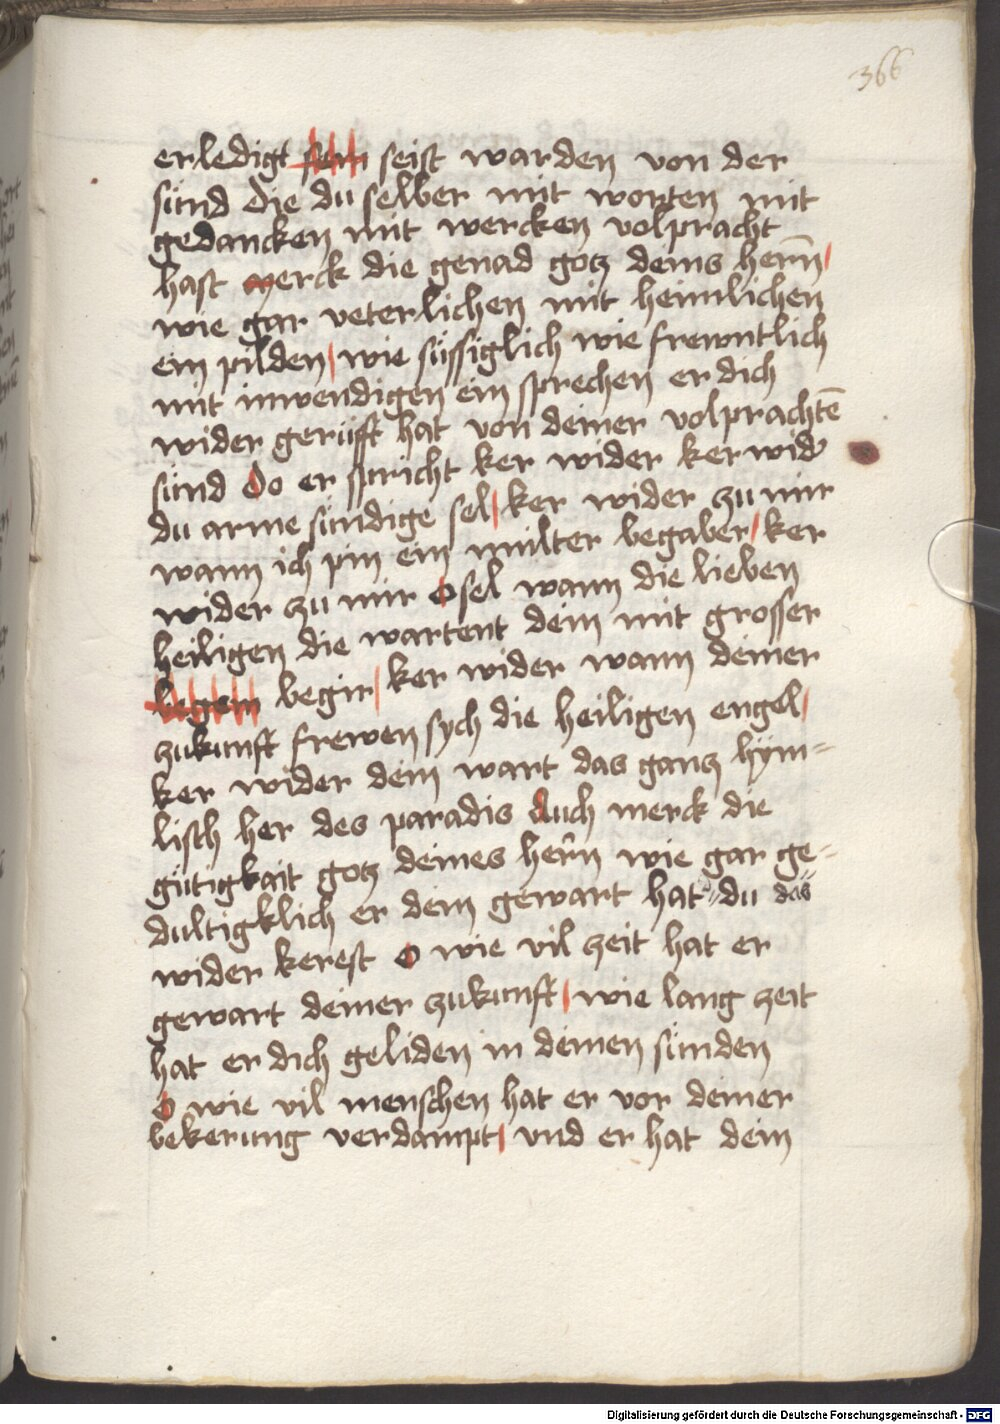 366
erledigt sein seist warden von der
sünd Die du selber mit worten mit
gedancken mit wercken volpracht
hast merck die genad gotz deins herñ /
wie gar veterlichen mit heimlichen
ein pilden / wie süssiglich wie frewntlich
mit inwendigen ein sprechen er dich
wider gerüfft hat von deiner volprachtē
sünd Do er spricht ker wider ker wid᷑
du arme sündige sel / ker wider zu mir
wann ich pin ein milter begaber / ker
wider zu mir O sel wann die lieben
heiligen die wartent dein mit grosser
begern begir / ker wider wann deiner
zukunft frewen sych die heiligen engel /
ker wider dein wart das gantz hÿm=
lisch her des paradis Auch merck die
gütigkait gotz deines herñ wie gar ge=
dultigklich er dein gewart hat das du
wider kerest O wie vil zeit hat er
gewart deiner zukunft / wie lang zeit
hat er dich geliden in deinen sünden
O wie vil menschen hat er vor deiner
bekerung verdampt / vnd er hat dein
Digitalisierung gefördert durch die Deutsche Forschungsgemeinschaft - DFG